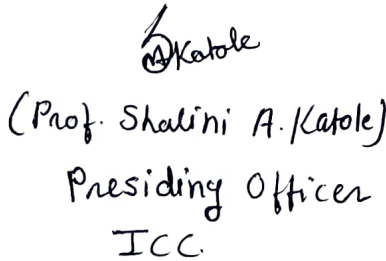 SAKatole
(Prof. Shalini A. Katole)
Presiding Officer
ICC.